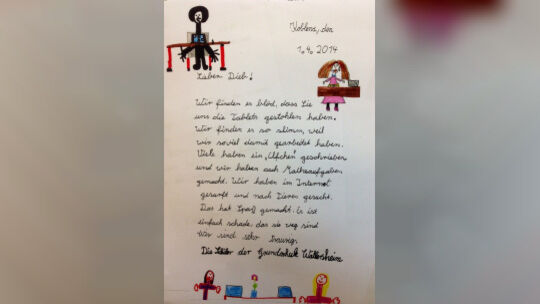 Koblenz, den
1.4.2014
Lieben Dieb!
Wir finden es blöd, dass Sie
uns die Tablets gestohlen haben.
Wir finden es so slimm, weil
wir soviel damit gearbeitet haben.
Viele haben ein „Elfchen" geschrieben
und wir haben auch Matheaufgaben
gemacht. Wir haben im Internet
gesurft und nach Tieren gesucht.
Das hat Spaß gemacht. Es ist
einfach schade, das sie weg sind
Wir sind sehr traurig.
Die der Grundschule Wallersheim